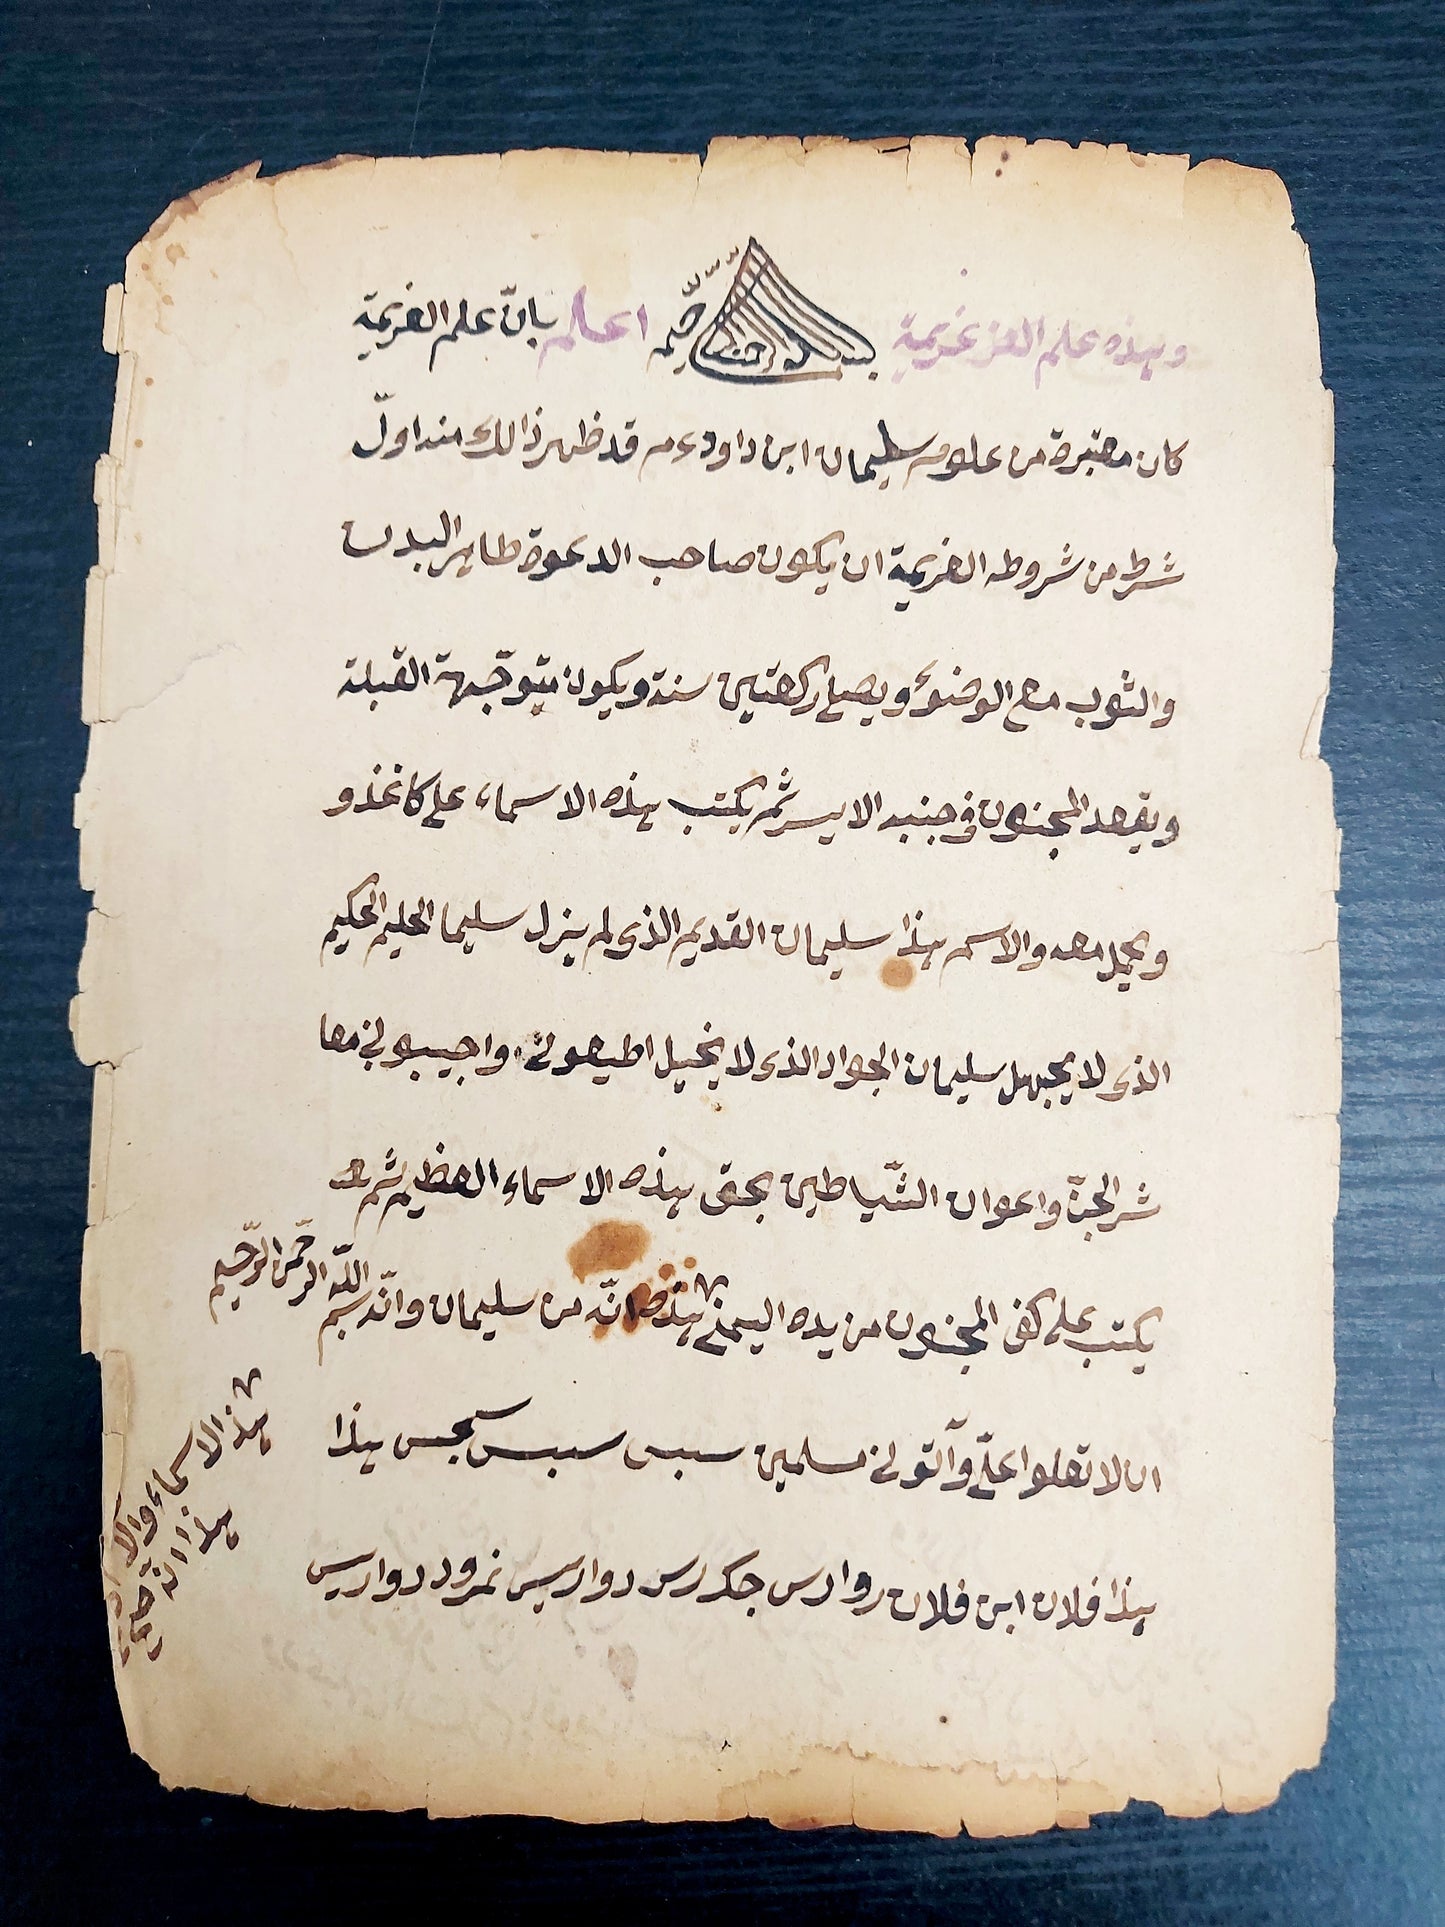 وهذه علم العز عزيمة بسم الله الرحمن الرحيم اعلم بانّ علم العزيمة
كان معتبرة من علوم سليمان ابن داود ء م قد ظهر ذالك منه اولّ
شرط من شروطه العزيمة ان يكون صاحب الدعوة طاهر البدن
والثوب مع الوضوء ويصلي ركعتين سنة ويكون يتوجّهة القبلة
ويقعد المجنون في جنبه الايسر ثم يكتب هذه الاسماء على كاغذ و
ويحمل معه والاسم هذا سليمان القديم الذى لم ينزل سليما الحليم الحكيم
الذى لا يجهل سليمان الجواد الذى لا يخيل اطيعونى واجيبونى معا
شر الجنّ واعوان الشّياطين بحق هذه الاسماء العظيم ثم
يكتب على كف المجنون من يده اليمنى هذه انّه من سليمان وانّه بسم
الله الرحمن الرّحيم
ان لا تعلوا علىّ وآتونى مسلمين سبس سبس سجس هذا
هذا فلان ابن فلان روارس جكدرس دواريس نمرود دواريس
هذا الاسماء والا
هذا انه صح